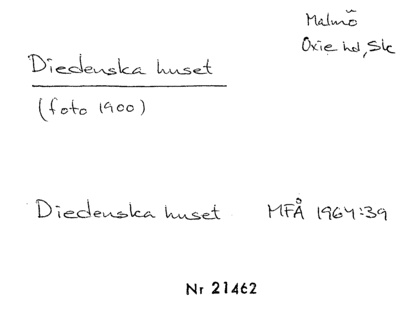 Malmö
Oxie hd, Sk
Diedenska huset
(foto 1900)
Diedenska huset MFÅ 1964:39
Nr 21462